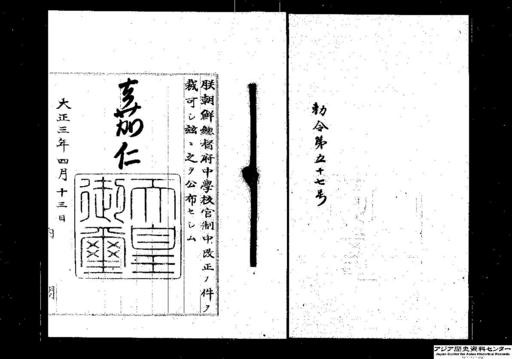 勅令第五十七号
朕朝鮮総督府中学校官制中改正ノ件ヲ
裁可シ玆ニ之ヲ公布セシム
嘉仁
天皇
御璽
大正三年四月十三日
内
アジア歴史資料センター
Japan Center for Asian Historical Records